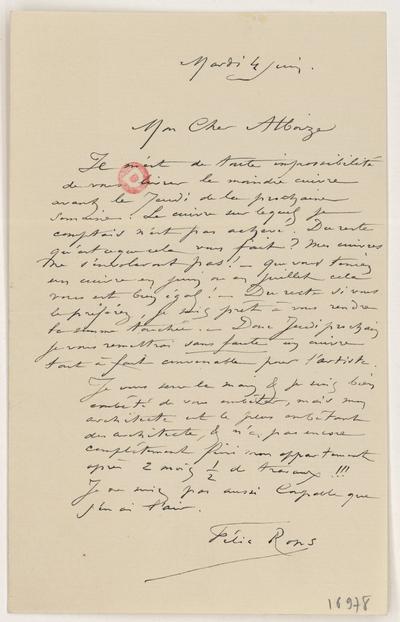 Mardi 4 juin.
Mon Cher Alboize
Il m'est de toute impossibilité
de vous livrer le moindre cuivre
avant le Jeudi de la prochaine
semaine. Le cuivre sur lequel je
comptais n'est pas achevé. Du reste
qu'est ce que cela vous fait ? Mes cuivres
ne s'envoleront pas ! — que vous teniez
un cuivre en juin ou en juillet cela
vous est bien égal ! — Du reste si vous
le préférez, je suis prêt à vous rendre
la somme touchée. — Donc Jeudi prochain
je vous remettrai sans faute un cuivre
tout à fait convenable pour l'artiste.
Je vous serre la main & je suis bien
embêté de vous embêter, mais mon
architecte est le plus embêtant
des architectes, & n'a pas encore
complètement fini mon appartement
après 2 mois ½ de travaux !!!
Je ne suis pas aussi coupable que
j'en ai l'air.
Félicien Rops
16978